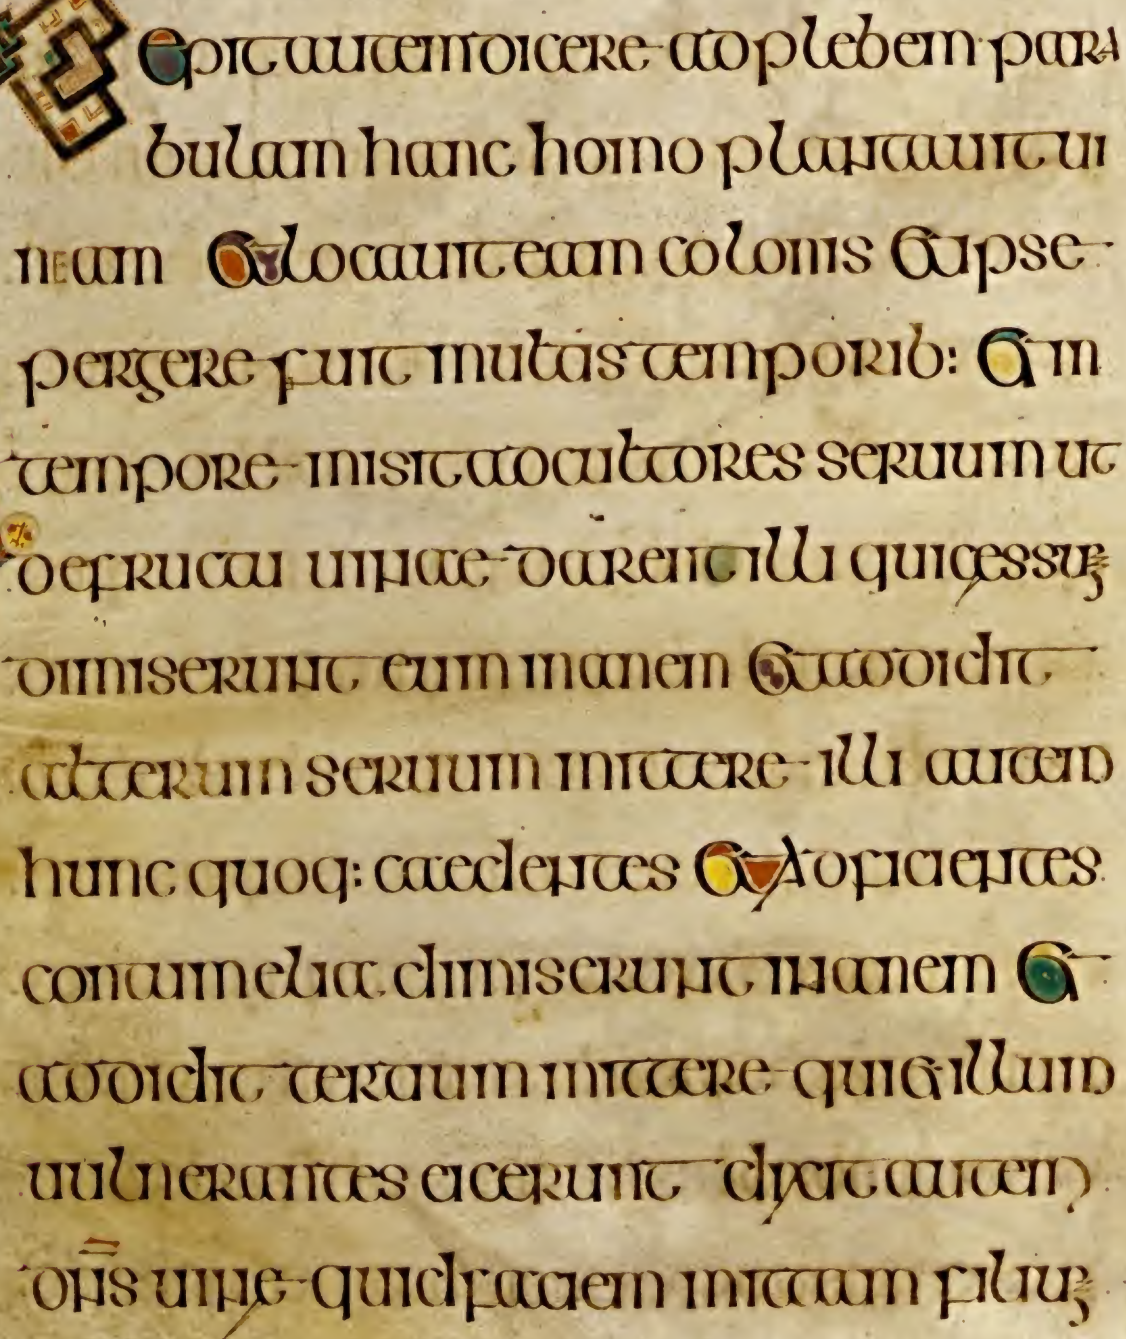 epit autem dicere ad plebem para
bulam hanc homo plantauit ui
neam Et locauit eam colonis Et ipse
pergere fuit multis temporib: Et in
tempore misit ad cultores seruum ut
de fructu uineae darent illi qui cessum
dimiserunt eum inanem Et addidit
alterum seruum mittere illi autem
hunc quoq: caedentes Et adficientes
contumelia dimiserunt inanem Et
addidit tertium mittere qui et illum
uulnerantes eicerunt dixit autem
dns uineę quid faciam mittam filium